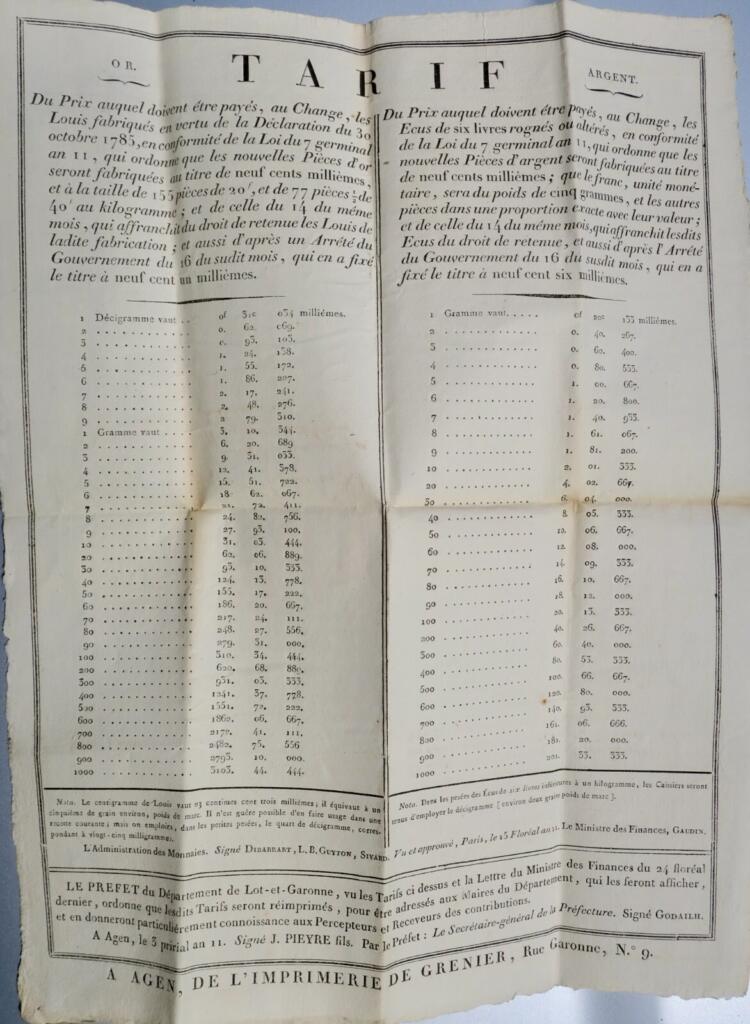 OR. TARIF ARGENT.
Du Prix auquel doivent être payés, au Change, les
Louis fabriqués en vertu de la Déclaration du 30
octobre 1785, en conformité de la Loi du 7 germinal
an 11, qui ordonne que les nouvelles Pièces d'or
seront fabriquées au titre de neuf cents millièmes,
et à la taille de 155 pièces de 20f, et de 77 pièces ½ de
40f au kilogramme; et de celle du 14 du même
mois, qui affranchit du droit de retenue les Louis de
ladite fabrication; et aussi d'après un Arrêté du
Gouvernement du 16 du sudit mois, qui en a fixé
le titre à neuf cent un millièmes.
1 Décigramme vaut . . 0f 31c 034 millièmes.
2 . . . 0. 62. 069.
3 . . . 0. 93. 103.
4 . . . 1. 24. 138.
5 . . . 1. 55. 172.
6 . . . 1. 86. 207.
7 . . . 2. 17. 241.
8 . . . 2. 48. 276.
9 . . . 2 79. 310.
1 Gramme vaut . . . 3. 10. 344.
2 . . . 6. 20. 689
3 . . . 9. 31. 033.
4 . . . 12. 41. 378.
5 . . . 15. 51. 722.
6 . . . 18 62. 067.
7 . . . 21. 72. 411.
8 . . . 24. 82. 756.
9 . . . 27. 93. 100.
10 . . . 31. 03. 444.
20 . . . 62. 06. 889.
30 . . . 93. 10. 333.
40 . . . 124. 13. 778.
50 . . . 155. 17. 222.
60 . . . 186. 20. 667.
70 . . . 217. 24. 111.
80 . . . 248. 27. 556.
90 . . . 279. 31. 000.
100 . . . 310. 34. 444.
200 . . . 620. 68. 889.
300 . . . 931. 03. 333.
400 . . . 1241. 37. 778.
500 . . . 1551. 72. 222.
600 . . . 1862. 06. 667.
700 . . . 2172. 41. 111.
800 . . . 2482. 75. 556
900 . . . 2793. 10. 000.
1000 . . . 3103. 44. 444.
Nota. Le centigramme de Louis vaut 03 centimes cent trois millièmes; il équivaut à un
cinquième de grain environ, poids de marc. Il n'est guère possible d'en faire usage dans une
recette courante; mais on emploira, dans les petites pesées, le quart de décigramme, corres-
pondant à vingt-cinq milligrammes.
L'Administration des Monnaies. Signé DIBARRART, L. B. GUYTON, SIVARD.
Du Prix auquel doivent être payés, au Change, les
Ecus de six livres rognés ou altérés, en conformité
de la Loi du 7 germinal an 11, qui ordonne que les
nouvelles Pièces d'argent seront fabriquées au titre
de neuf cents millièmes; que le franc, unité moné-
taire, sera du poids de cinq grammes, et les autres
pièces dans une proportion exacte avec leur valeur;
et de celle du 14 du même mois, qui affranchit lesdits
Ecus du droit de retenue, et aussi d'après l'Arrêté
du Gouvernement du 16 du susdit mois, qui en a
fixé le titre à neuf cent six millièmes.
1 Gramme vaut. . . . 0f 20c 133 millièmes.
2 . . . 0. 40. 267.
3 . . . 0. 60. 400.
4 . . . 0. 80. 533.
5 . . . 1. 00. 667.
6 . . . 1. 20. 800.
7 . . . 1. 40. 933.
8 . . . 1. 61. 067.
9 . . . 1. 81. 200.
10 . . . 2. 01. 333.
20 . . . 4. 02. 667.
30 . . . 6. 04. 000.
40 . . . 8. 05. 333.
50 . . . 10. 06. 667.
60 . . . 12. 08. 000.
70 . . . 14. 09. 333.
80 . . . 16. 10. 667.
90 . . . 18. 12. 000.
100 . . . 20. 13. 333.
200 . . . 40. 26. 667.
300 . . . 60. 40. 000.
400 . . . 80. 53. 333.
500 . . . 100. 66. 667.
600 . . . 120. 80. 000.
700 . . . 140. 93. 333.
800 . . . 161. 06. 666.
900 . . . 181. 20. 000.
1000 . . . 201. 33. 333.
Nota. Dans les pesées des Écus de six livres inférieures à un kilogramme, les Caissiers seront
tenus d'employer le décigramme [environ deux grains poids de marc].
Vu et approuvé, Paris, le 23 Floréal an 11. Le Ministre des Finances, GAUDIN.
LE PREFET du Département de Lot-et-Garonne, vu les Tarifs ci dessus et la Lettre du Ministre des Finances du 24 floréal
dernier, ordonne que lesdits Tarifs seront réimprimés, pour être adressés aux Maires du Département, qui les feront afficher,
et en donneront particulièrement connoissance aux Percepteurs et Receveurs des contributions.
A Agen, le 3 pririal an 11. Signé J. PIEYRE fils. Par le Préfet: Le Secrétaire-général de la Préfecture. Signé GODAILH.
A AGEN, DE L'IMPRIMERIE DE GRENIER, Rue Garonne, N.° 9.